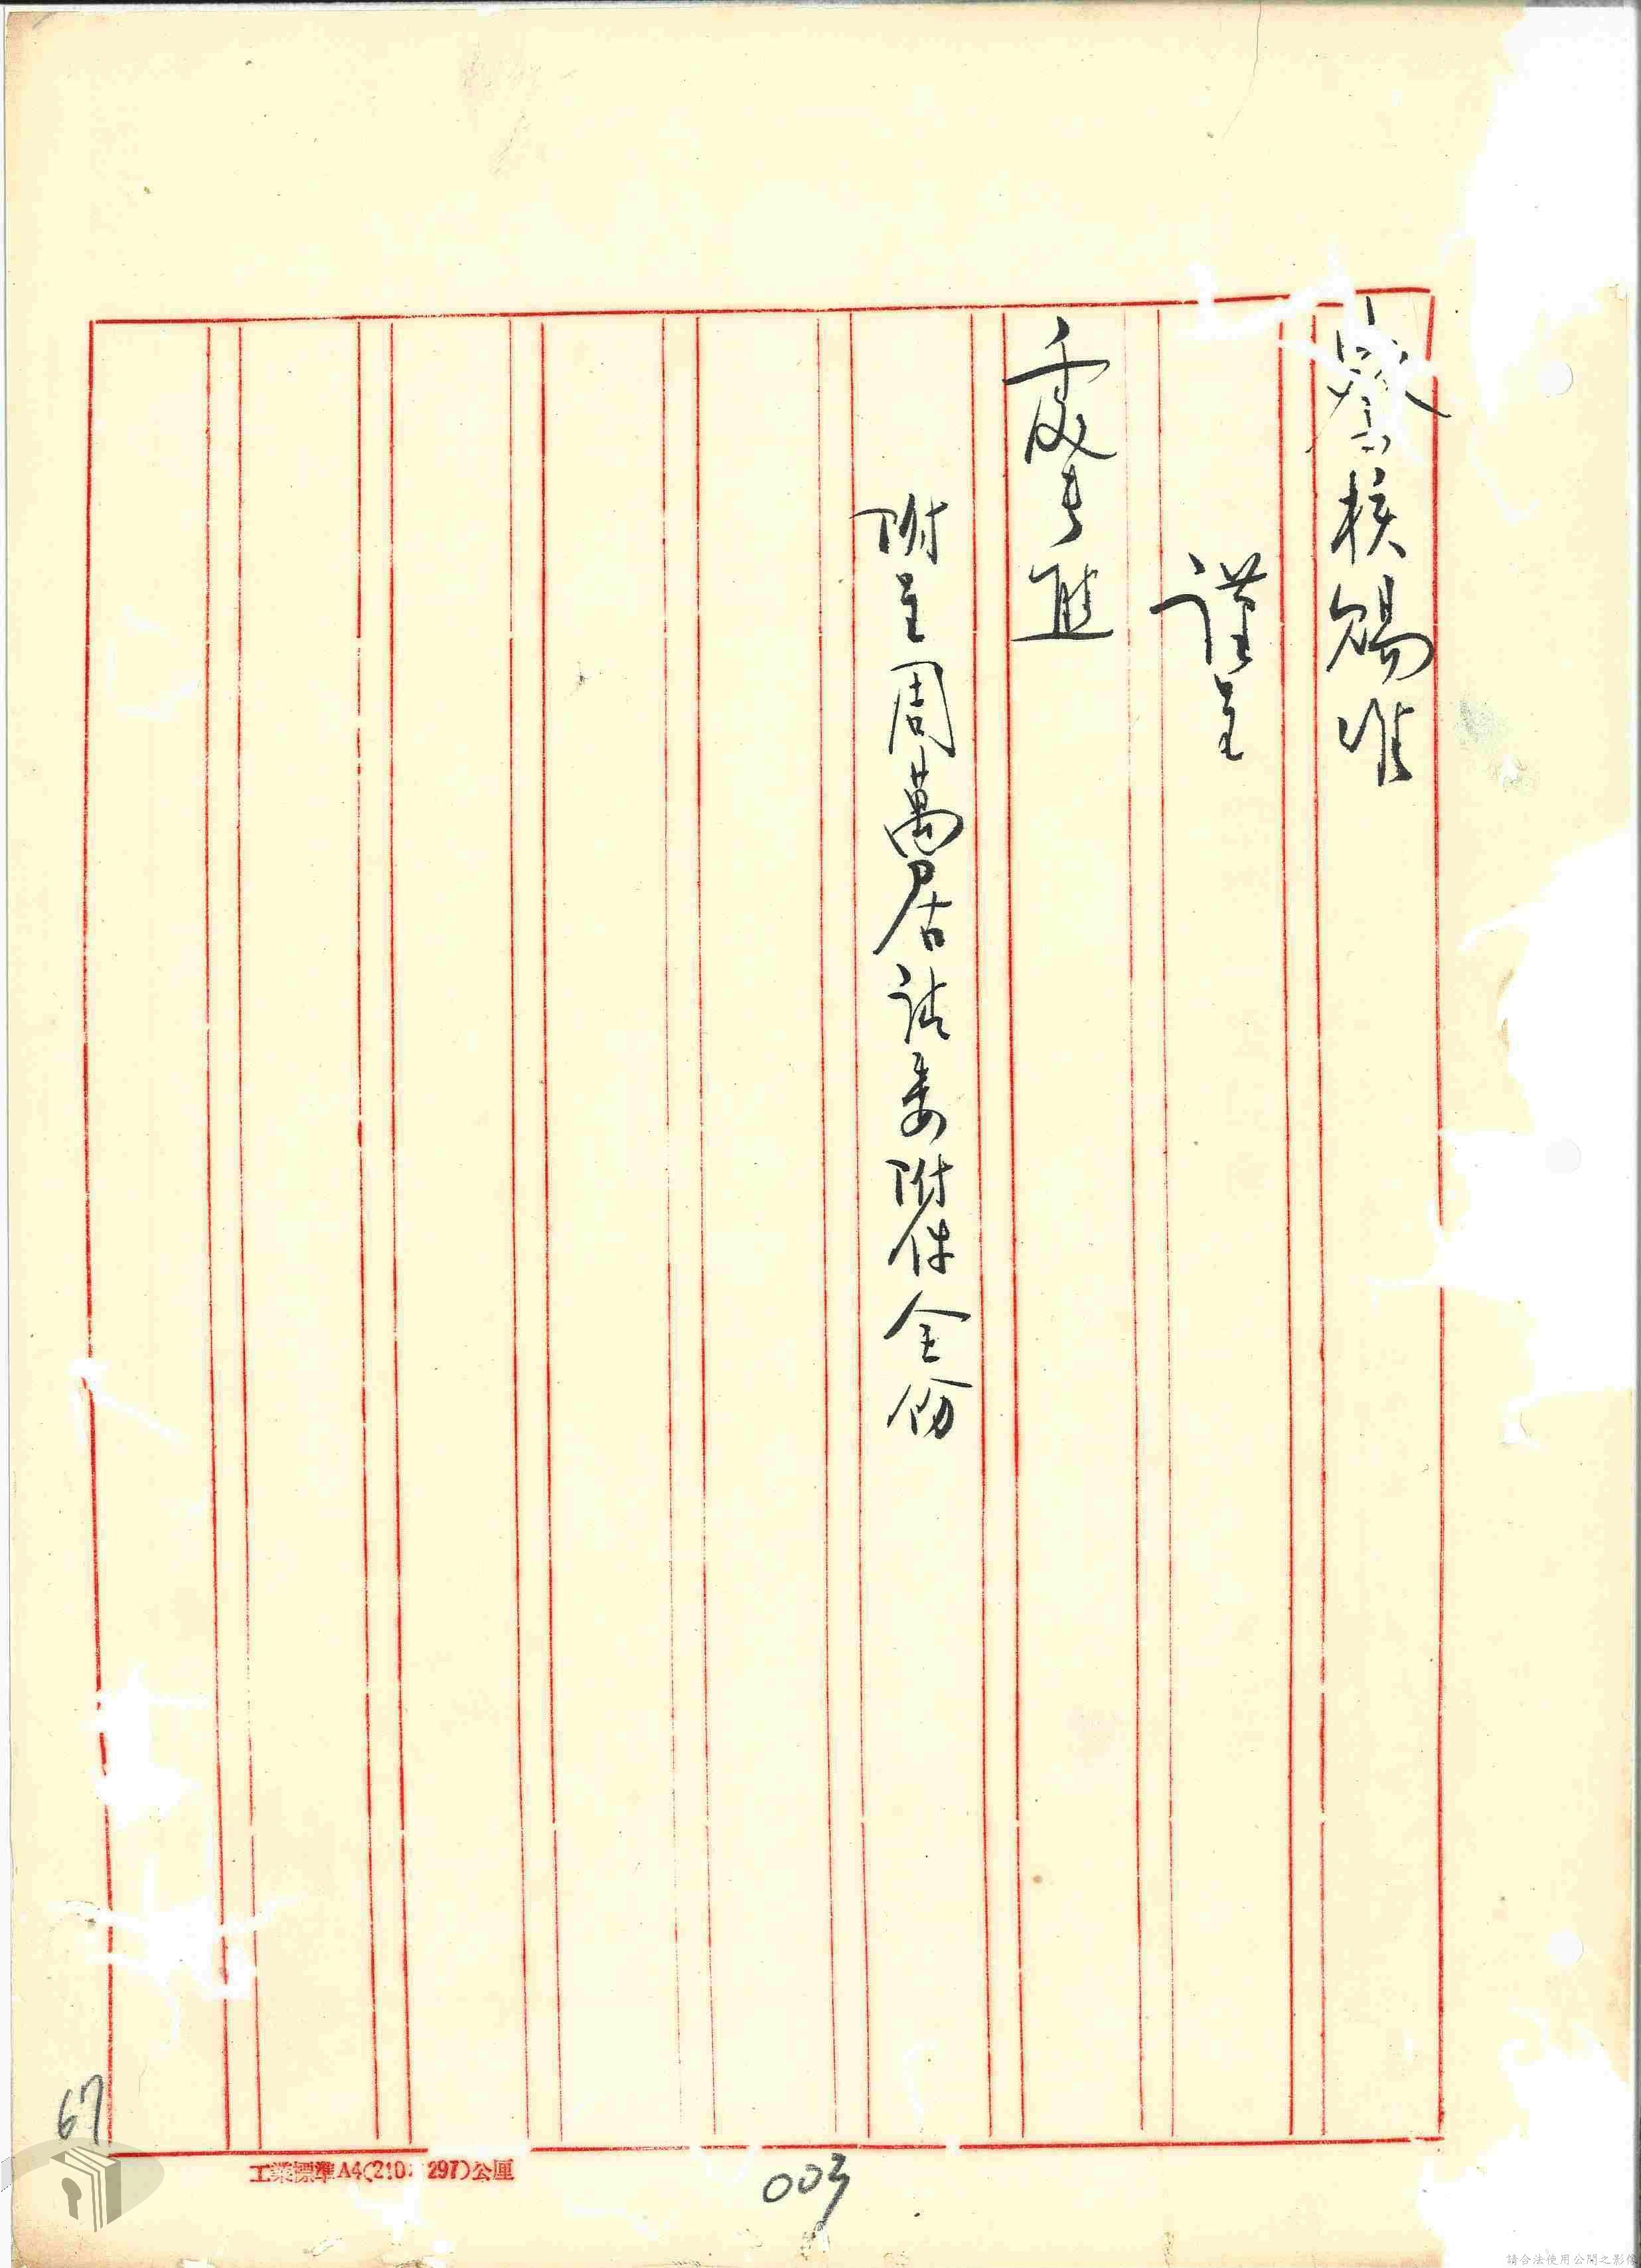 詧核賜准
謹呈
處長熊
附呈周萬居請委附件全份
67
工業標準A4(210×297)公厘
003
請合法使用公開之影像